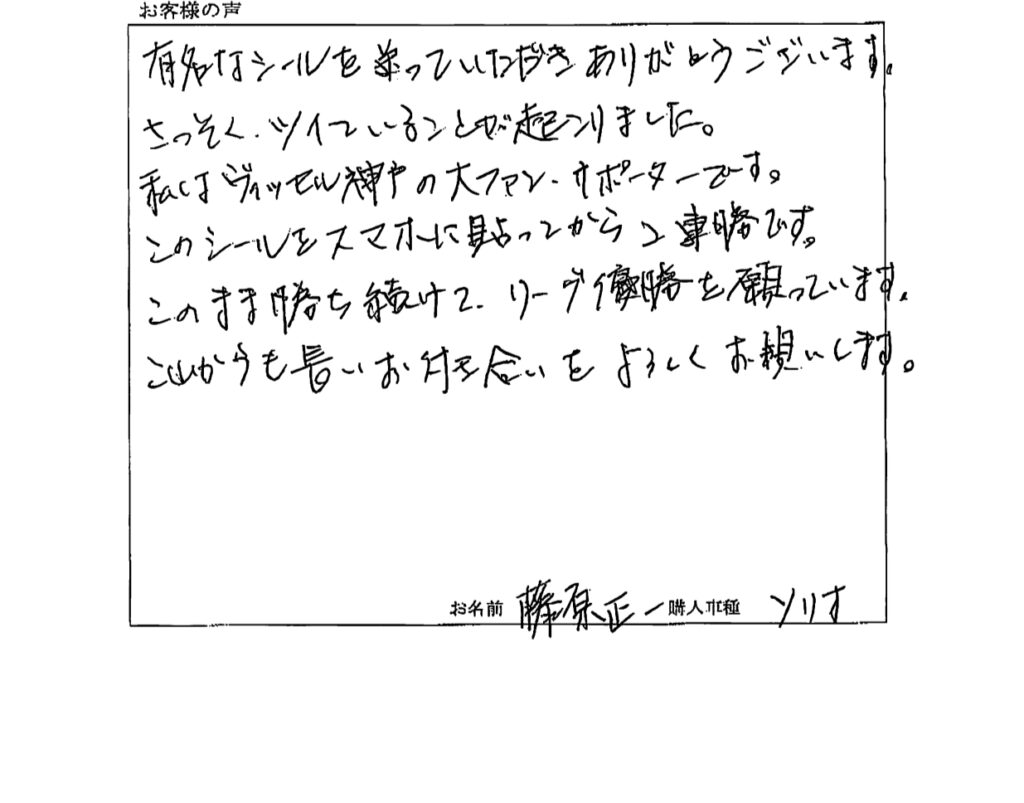 お客様の声
有名なシールを送っていただきありがとうございます。
さっそく、ツイていることが起こりました。
私はヴィッセル神戸の大ファン・サポーターです。
このシールをスマホに貼ってから2連勝です。
このまま勝ち続けて、リーグ優勝を願っています。
これからも長いお付き合いをよろしくお願いします。
お名前 藤原正一 購入車種 ソリオ